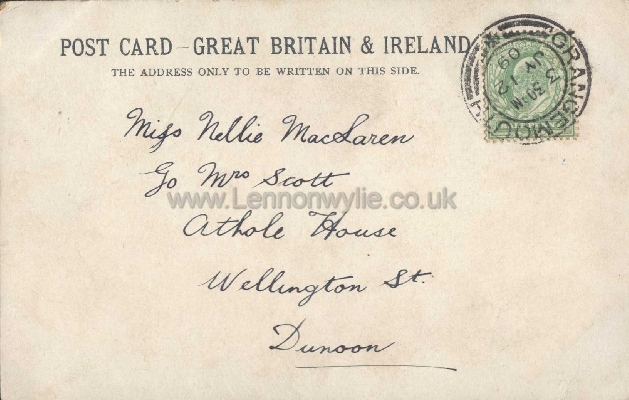 POST CARD – GREAT BRITAIN & IRELAND
THE ADDRESS ONLY TO BE WRITTEN ON THIS SIDE.
GRANGEMOUTH
JN 3
09
Miss Nellie MacLaren
c/o Mrs Scott
www.Lennonwylie.co.uk
Athole House
Wellington St.
Dunoon